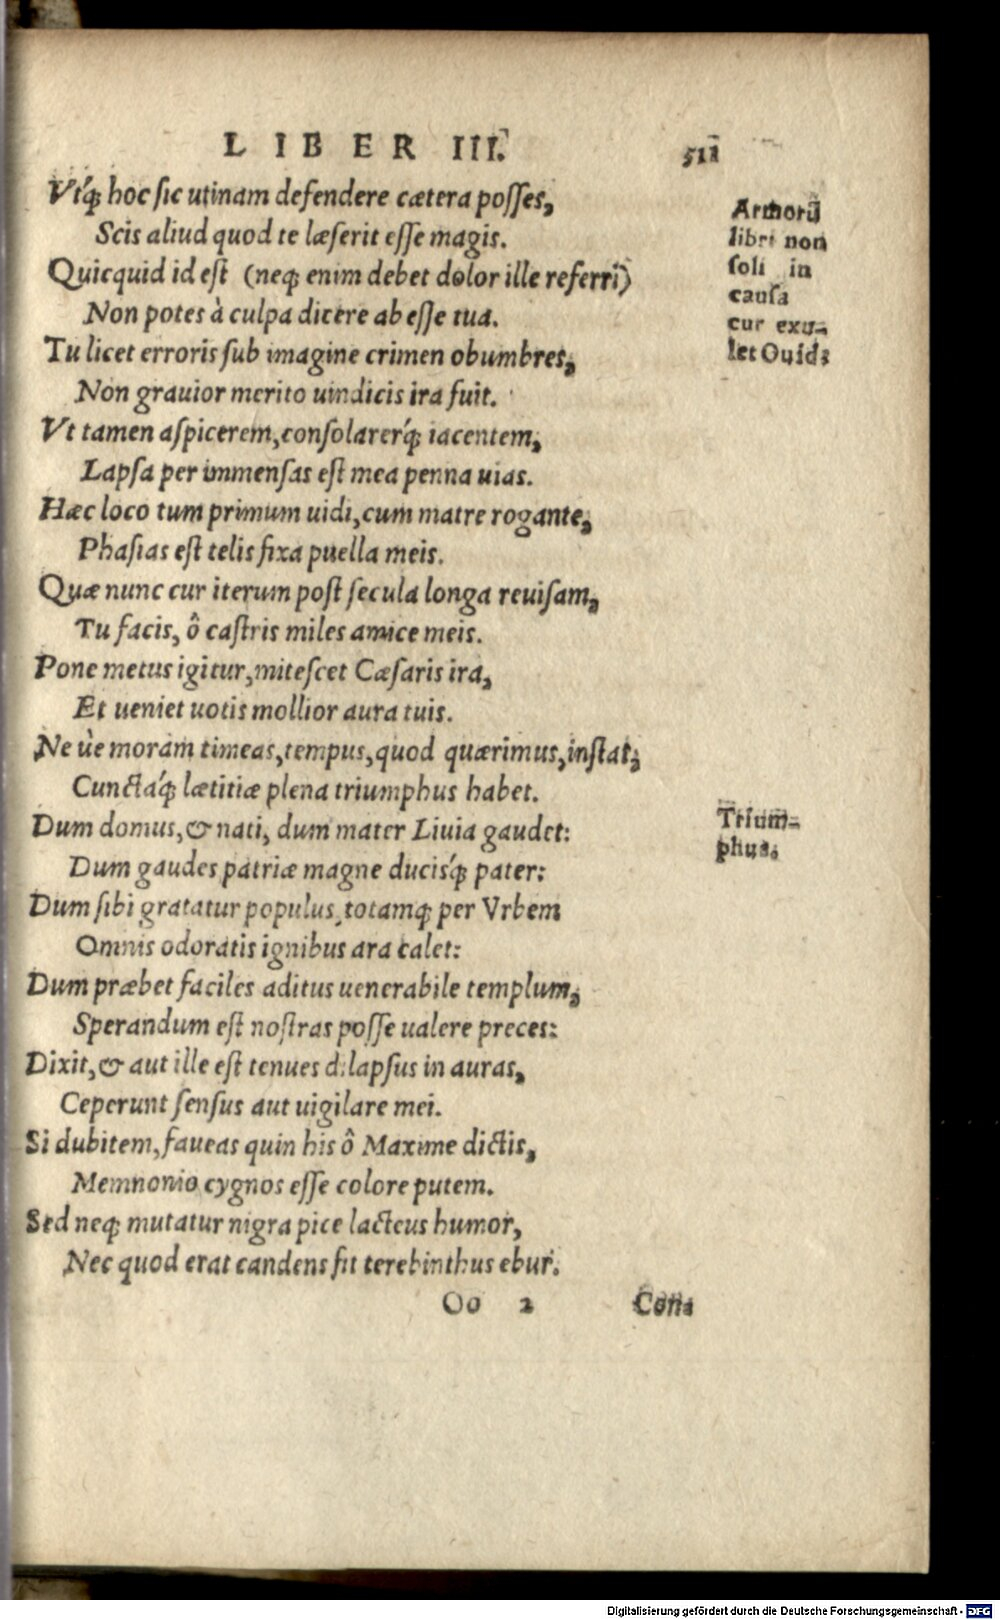 LIBER III. 511
Vtq́; hoc sic utinam defendere cætera posses,
Scis aliud quod te læserit esse magis.
Quicquid id est (neq; enim debet dolor ille referri)
Non potes à culpa dicere abesse tua.
Tu licet erroris sub imagine crimen obumbres,
Non grauior merito uindicis ira fuit.
Armorū
libri non
soli in
causa
cur exu-
let Ouid:
Vt tamen aspicerem, consolarerq́; iacentem,
Lapsa per immensas est mea penna uias.
Hæc loco tum primum uidi, cum matre rogante,
Phasias est telis fixa puella meis.
Quæ nunc cur iterum post secula longa reuisam,
Tu facis, ô castris miles amice meis.
Pone metus igitur, mitescet Cæsaris ira,
Et ueniet uotis mollior aura tuis.
Ne ùe moram timeas, tempus, quod quærimus, instat;
Cunctaq́; lætitiæ plena triumphus habet.
Dum domus, & nati, dum mater Liuia gaudet:
Dum gaudes patriæ magne ducisq́; pater:
Trium-
phus.
Dum sibi gratatur populus, totamq; per Vrbem
Omnis odoratis ignibus ara calet:
Dum præbet faciles aditus uenerabile templum,
Sperandum est nostras posse ualere preces:
Dixit, & aut ille est tenues dilapsus in auras,
Ceperunt sensus aut uigilare mei.
Si dubitem, faueas quin his ô Maxime dictis,
Memnonio cygnos esse colore putem.
Sed neq; mutatur nigra pice lacteus humor,
Nec quod erat candens fit terebinthus ebur.
Oo 2 Con-
Digitalisierung gefördert durch die Deutsche Forschungsgemeinschaft - DFG